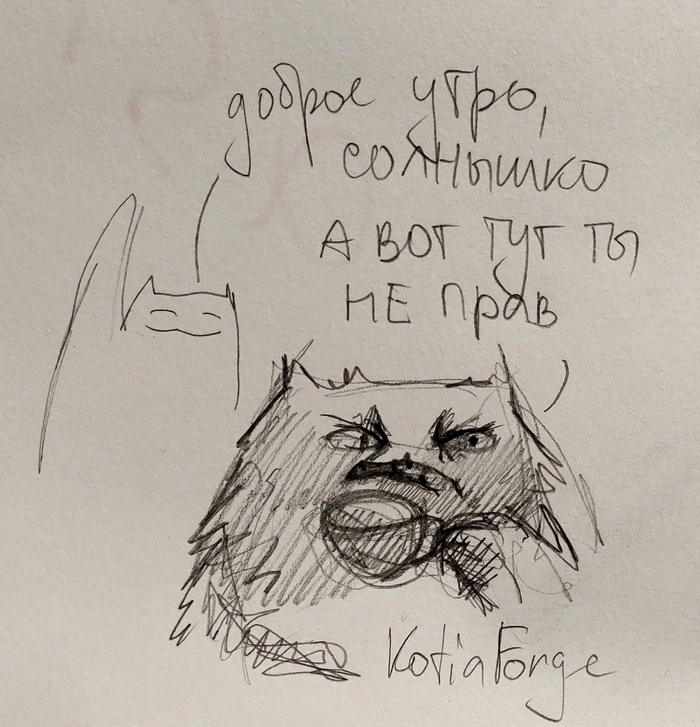 доброе утро,
солнышко
А ВОТ ТУТ ТЫ
НЕ Прав
KotiaForge